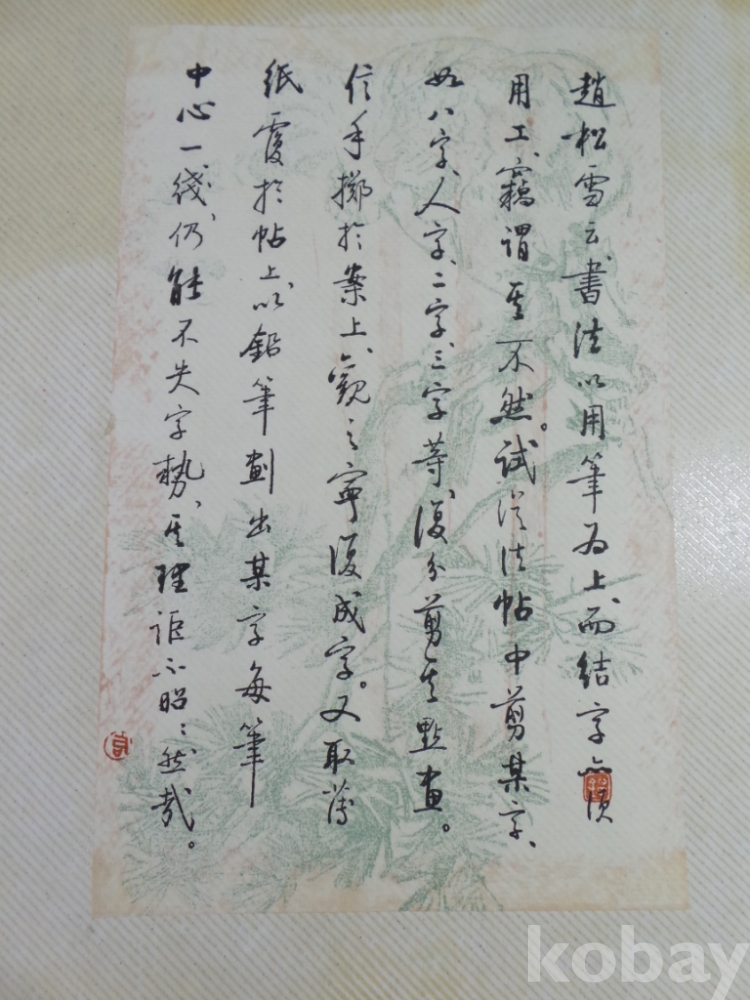 趙松雪云、書法以用筆為上、而結字亦須
用工、竊謂其不然。試從法帖中剪某字、
如八字、人字、二字、三字等、復分剪其點畫。
信手擲於案上、觀之寧復成字。又取薄
紙覆於帖上、以鉛筆劃出某字每筆
中心一綫、仍能不失字勢、其理詎不昭々然哉。
kobay